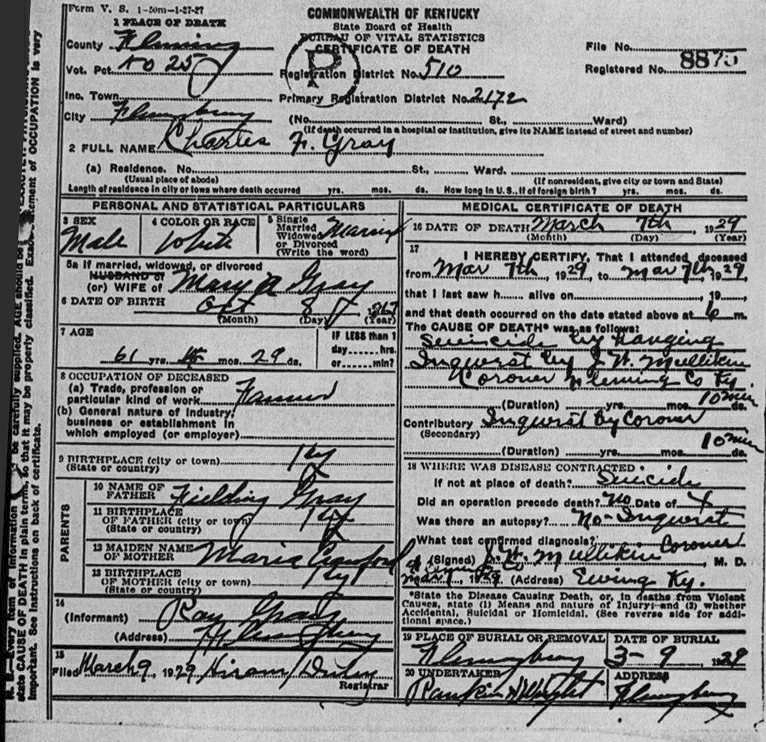 Form V. S. 1-50m-1-27-27
COMMONWEALTH OF KENTUCKY
State Board of Health
BUREAU OF VITAL STATISTICS
CERTIFICATE OF DEATH
1 PLACE OF DEATH
County Fleming
Vot. Pct No 25
Inc. Town
City Flemingsburg
P
Registration District No. 510
Primary Registration District No. 2172
File No.
Registered No. 8875
(No. St., Ward)
(If death occurred in a hospital or institution, give its NAME instead of street and number)
2 FULL NAME Charles F. Gray
(a) Residence. No. St., Ward.
(Usual place of abode) (If nonresident, give city or town and State)
Length of residence in city or town where death occurred yrs. mos. ds. How long in U.S., if of foreign birth? yrs. mos. ds.
PERSONAL AND STATISTICAL PARTICULARS
3 SEX
Male
4 COLOR OR RACE
White
5 Single
Married
Widowed
or Divorced
(Write the word)
5a If married, widowed, or divorced
HUSBAND of
(or) WIFE of Mary A Gray
6 DATE OF BIRTH Oct 8 1867
(Month) (Day) (Year)
7 AGE
61 yrs. mos. 29 ds.
IF LESS than 1
day hrs.
or min?
8 OCCUPATION OF DECEASED
(a) Trade, profession or
particular kind of work Farmer
(b) General nature of industry,
business or establishment in
which employed (or employer)
9 BIRTHPLACE (city or town) Ky
(State or country)
PARENTS
10 NAME OF
FATHER Fielding Gray
11 BIRTHPLACE
OF FATHER (city or town) Ky
(State or country)
12 MAIDEN NAME
OF MOTHER Maria Crawford
13 BIRTHPLACE
OF MOTHER (city or town) Ky
(State or country)
14
(Informant) Ray Gray
(Address) Flemingsburg
15
Filed March 9, 1929 Hiram Duley
Registrar
MEDICAL CERTIFICATE OF DEATH
16 DATE OF DEATH March 7th, 1929
(Month) (Day) (Year)
17
I HEREBY CERTIFY, That I attended deceased
from Mar 7th, 1929, to Mar 7th, 1929
that I last saw h alive on , 19 ,
and that death occurred on the date stated above at 6 m.
The CAUSE OF DEATH* was as follows:
Suicide by Hanging
Inquest by J. W. Mullikin
Coroner Fleming Co Ky.
(Duration) yrs. mos. 10 min ds.
Contributory Inquest By Coroner
(Secondary)
(Duration) yrs. mos. 10 min ds.
18 WHERE WAS DISEASE CONTRACTED
If not at place of death? Suicide
Did an operation precede death? No Date of X
Was there an autopsy? No-Inquest
What test confirmed diagnosis?
(Signed) J. W. Mullikin Coroner M. D.
Mar 7, 1929 (Address) Ewing Ky.
*State the Disease Causing Death, or, in deaths from Violent
Causes, state (1) Means and nature of Injury; and (2) whether
Accidental, Suicidal or Homicidal. (See reverse side for addi-
tional space.)
19 PLACE OF BURIAL OR REMOVAL
Flemingsburg
DATE OF BURIAL
3-9, 1929
20 UNDERTAKER
Rankin & Wright
ADDRESS
Flemingsburg
state CAUSE OF DEATH in plain terms, so that it may be properly classified.
important. See instructions on back of certificate.